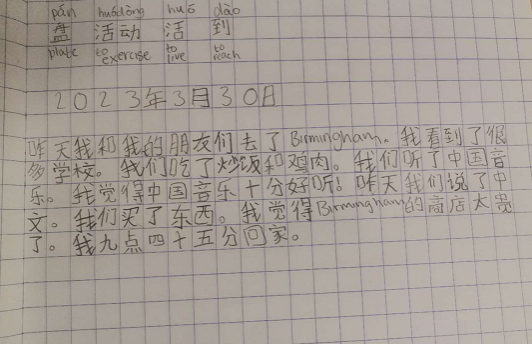 pán huódòng huó dào
盘 活动 活 到
plate to exercise to live to reach
2023年3月30日
昨天我和我的朋友们去了Birmingham。我看到了很
多学校。我们吃了炒饭和鸡肉。我们听了中国音
乐。我觉得中国音乐十分好听！昨天我们说了中
文。我们买了东西。我觉得Birmingham的商店太贵
了。我九点四十五分回家。